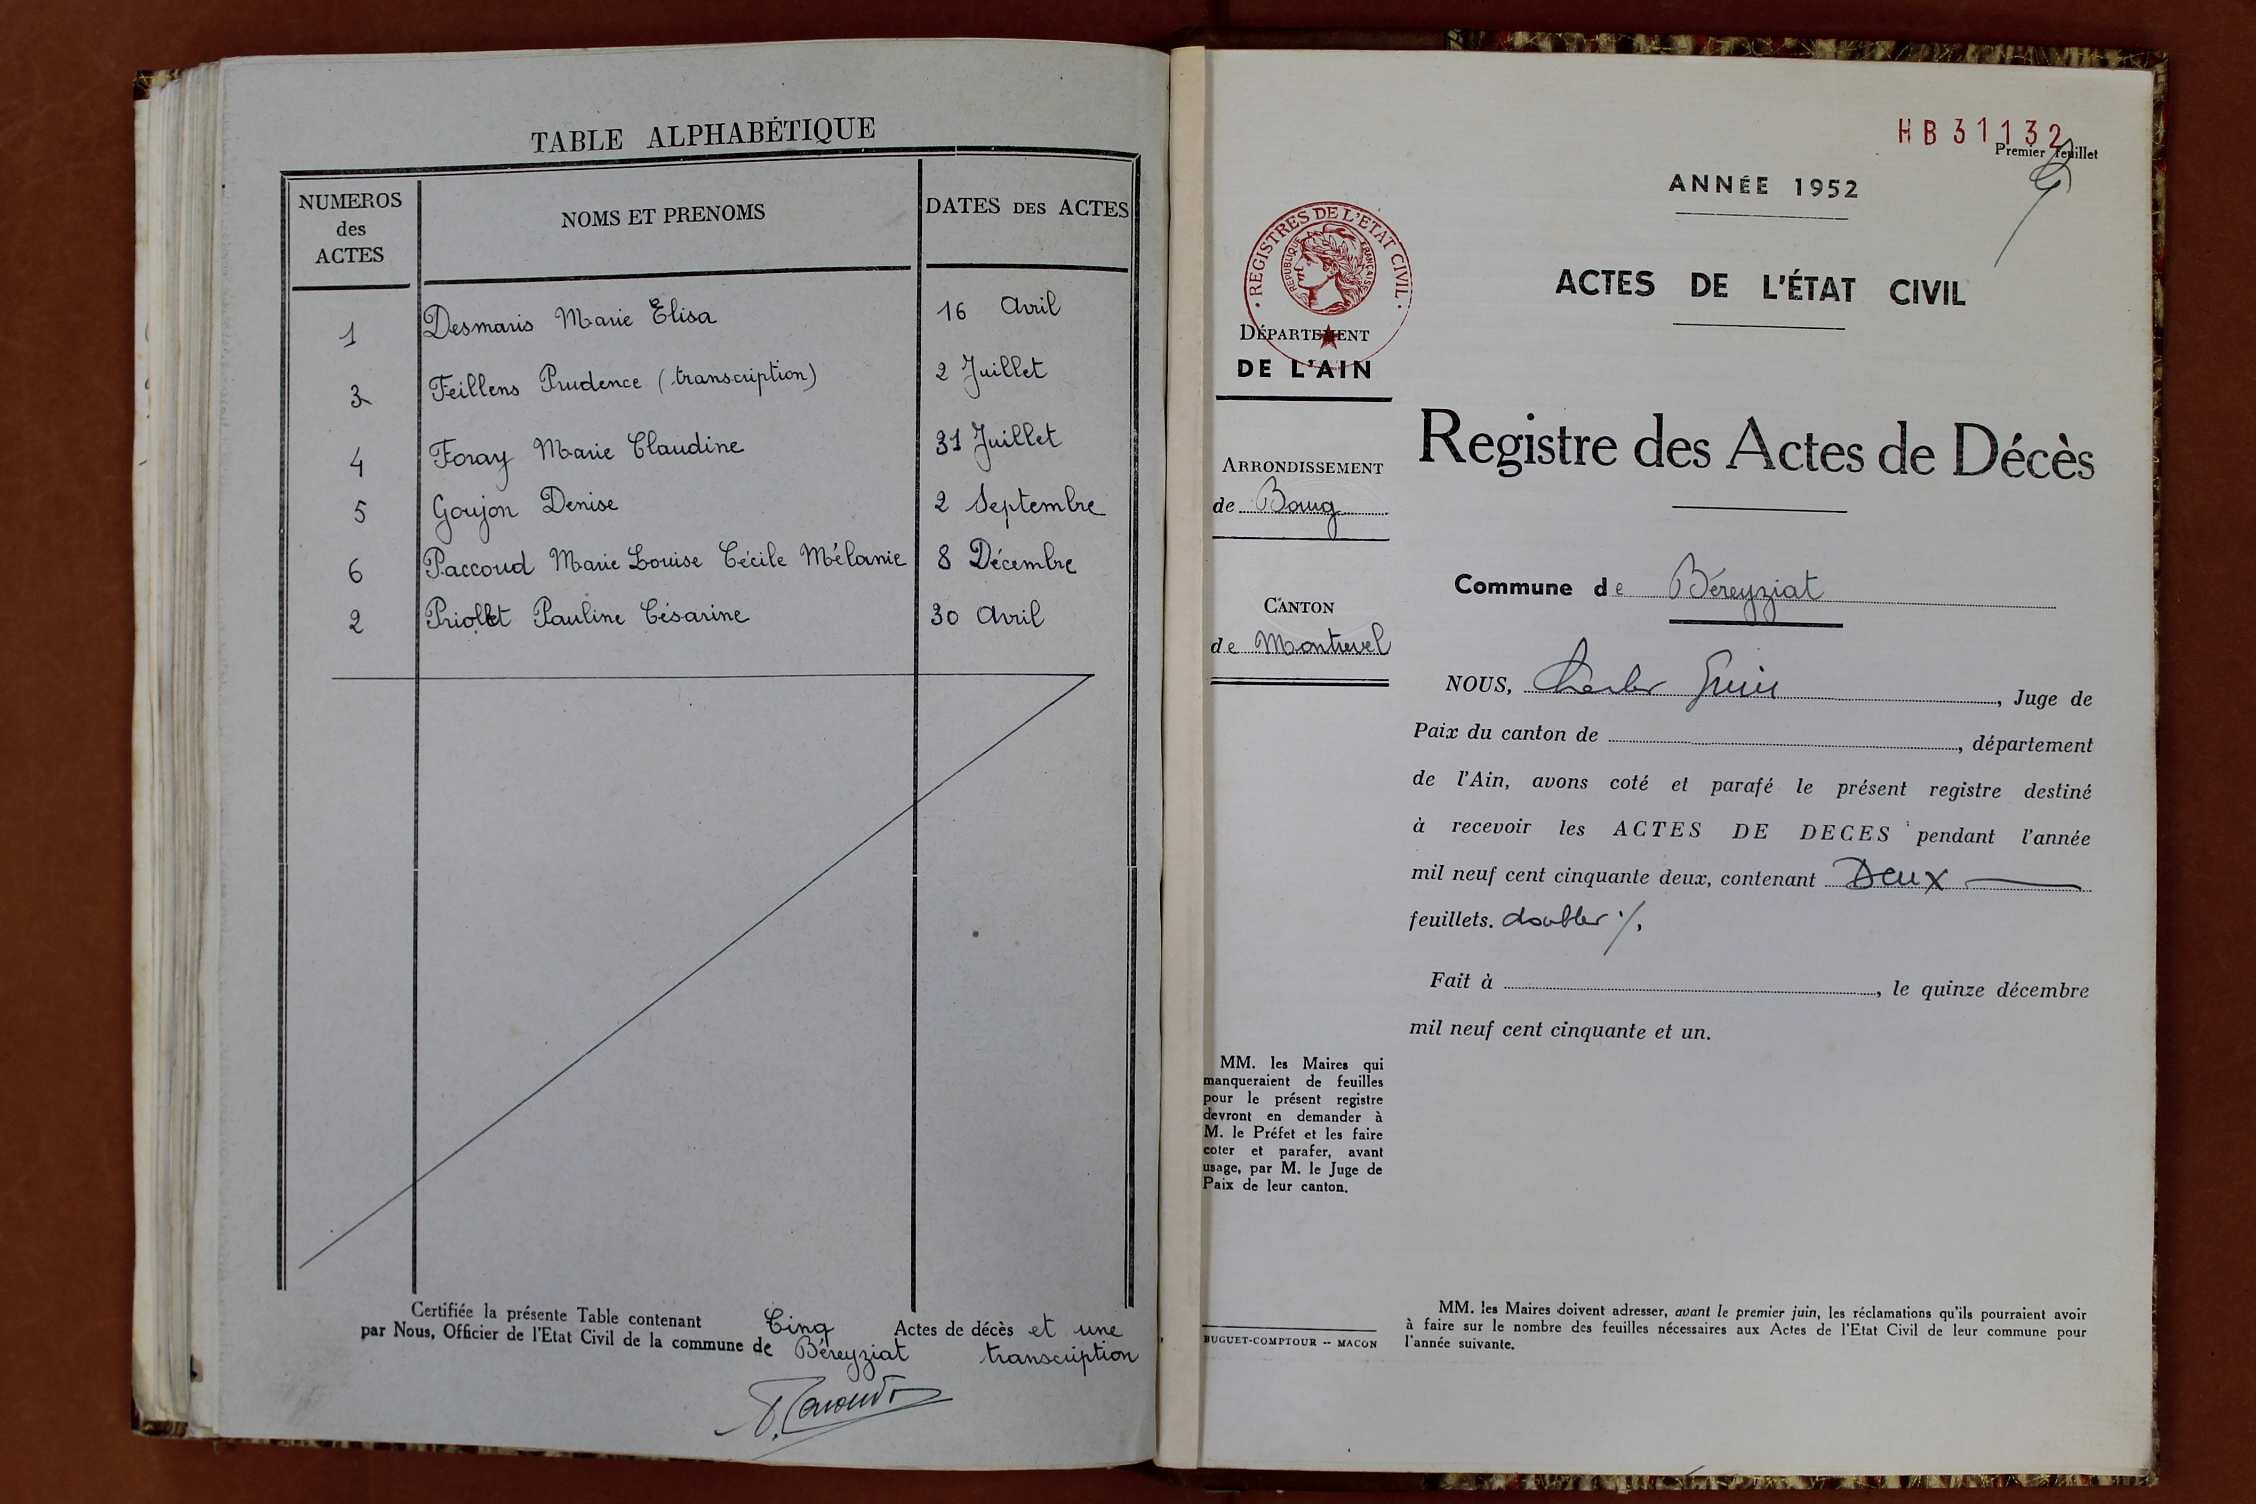 TABLE ALPHABÉTIQUE
NUMEROS des ACTES NOMS ET PRENOMS DATES DES ACTES
1 Desmaris Marie Elisa 16 Avril
3 Feillens Prudence (transcription) 2 Juillet
4 Foray Marie Claudine 31 Juillet
5 Goujon Denise 2 Septembre
6 Paccoud Marie Louise Cécile Mélanie 8 Décembre
2 Priollet Pauline Césarine 30 Avril
Certifiée la présente Table contenant Cinq Actes de décès et une
par Nous, Officier de l'Etat Civil de la commune de Béreyziat transcription
HB31132
Premier feuillet
ANNÉE 1952
REGISTRES DE L'ETAT CIVIL
REPUBLIQUE FRANÇAISE
ACTES DE L'ÉTAT CIVIL
DÉPARTEMENT
DE L'AIN
Registre des Actes de Décès
ARRONDISSEMENT
de Bourg
Commune de Béreyziat
CANTON
de Montrevel
NOUS, Charles , Juge de
Paix du canton de , département
de l'Ain, avons coté et parafé le présent registre destiné
à recevoir les ACTES DE DECES pendant l'année
mil neuf cent cinquante deux, contenant Deux
feuillets. doubles ./.
Fait à , le quinze décembre
mil neuf cent cinquante et un.
MM. les Maires qui
manqueraient de feuilles
pour le présent registre
devront en demander à
M. le Préfet et les faire
coter et parafer, avant
usage, par M. le Juge de
Paix de leur canton.
BUGUET-COMPTOUR -- MACON
MM. les Maires doivent adresser, avant le premier juin, les réclamations qu'ils pourraient avoir
à faire sur le nombre des feuilles nécessaires aux Actes de l'Etat Civil de leur commune pour
l'année suivante.